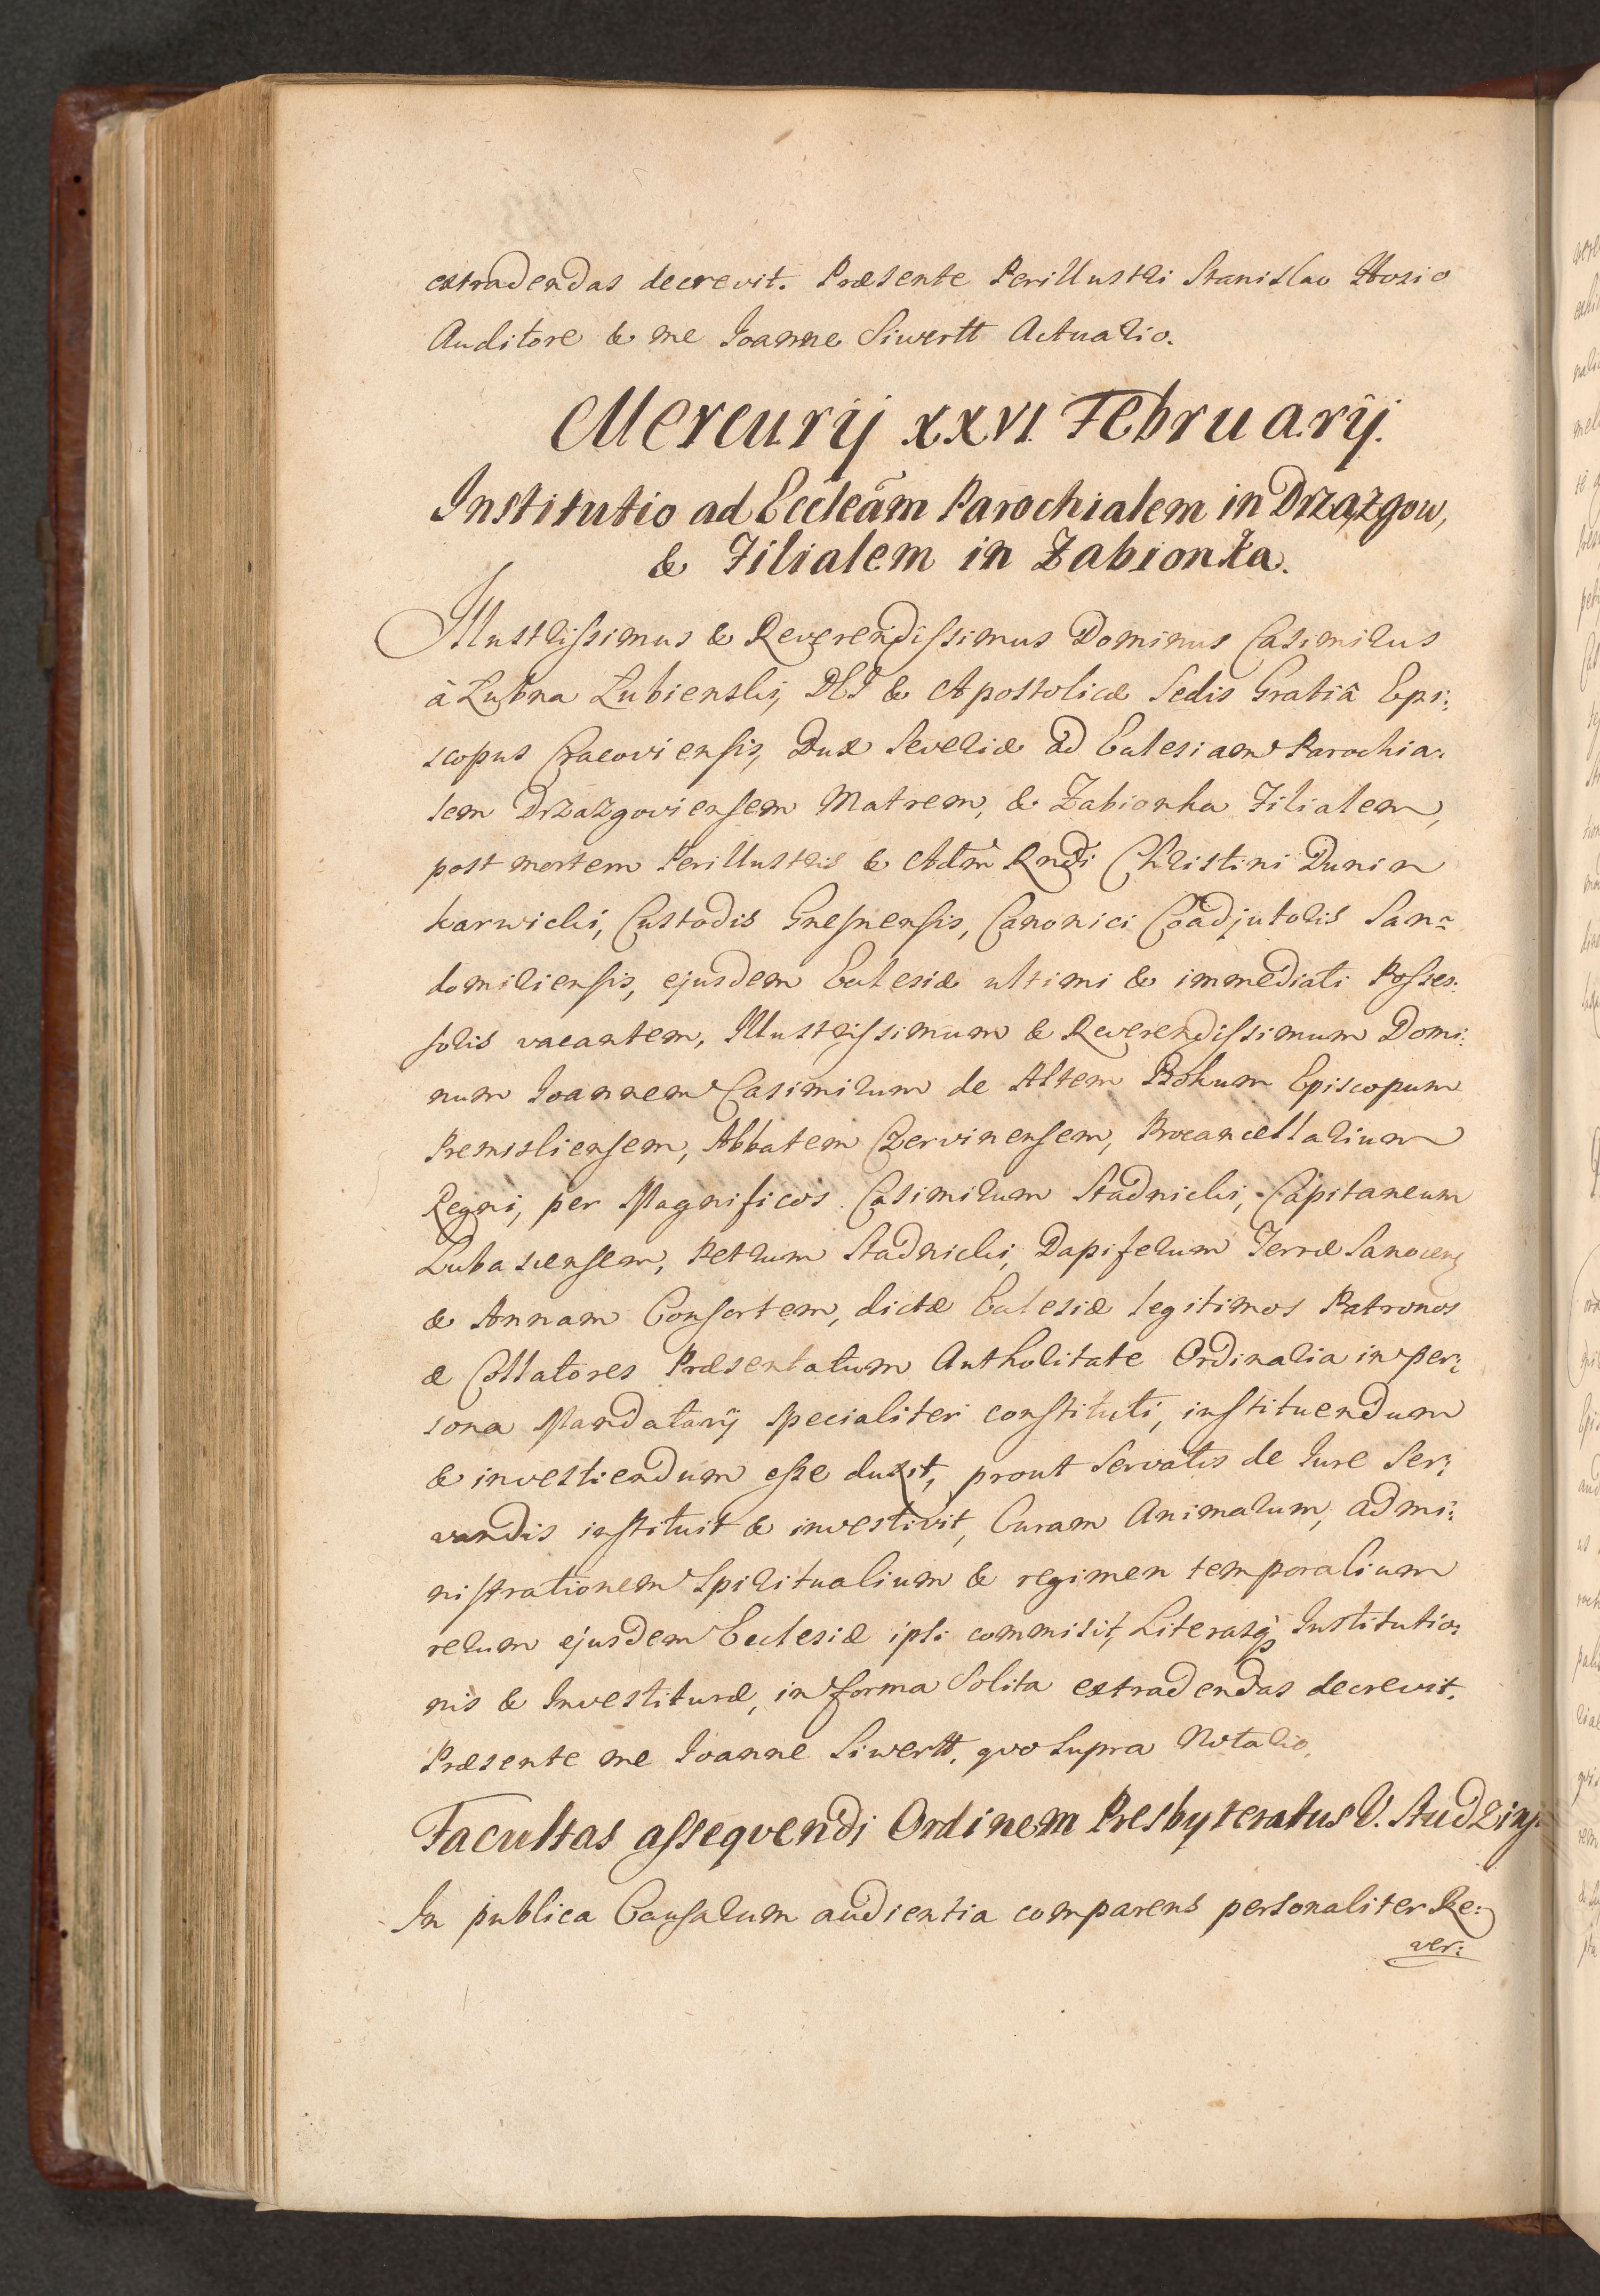 extradendas decrevit. Præsente Perillustri Stanislao Hosio
Auditore & me Joanne Siwertt Actuario.
Mercurij XXVI. Februarij.
Institutio ad Eccleãm Parochialem in Drzązgow,
& Filialem in Zabionka.
Illustrissimus & Reverendissimus Dominus Casimirus
à Łubna Łubienski, DEI & Apostolicæ Sedis Gratiâ Epi:
scopus Cracoviensis, Dux Severiæ ad Ecclesiam Parochia:
lem Drzazgoviensem Matrem, & Zabionka Filialem,
post mortem Perillustris & Adm̃ Rndi Christini Dunin
karwicki, Custodis Gnesnensis, Canonici Coadjutoris San=
domiriensis, ejusdem Ecclesiæ ultimi & immediati Posses:
soris vacantem, Illustrissimum & Reverendissimum Domi:
num Joannem Casimirum de Altem Bokum Episcopum
Premisliensem, Abbatem Czervinensem, Procancellarium
Regni, per Magnificos Casimirum Stadnicki, Capitaneum
Lubasiensem, Petrum Stadnicki, Dapiferum Terræ Sanocens
& Annam Consortem, dictæ Ecclesiæ legitimos Patronos
& Collatores Præsentatum Authoritate Ordinaria in per:
sona Mandatarij specialiter constituti, instituendum
& investiendum esse duxit, prout Servatis de Jure Ser:
vandis instituit & investivit, Curam Animarum, admi:
nistrationem Spiritualium & regimen temporalium
rerum ejusdem Ecclesiæ ipsi commisit, Literasq; Institutio:
nis & Investituræ, in forma Solita extradendas decrevit.
Præsente me Joanne Siwertt, quo Supra Notario.
Facultas assequendi Ordinem Presbyteratus V. Studzinj
In publica Causarum audientia comparens personaliter Re:
ver: